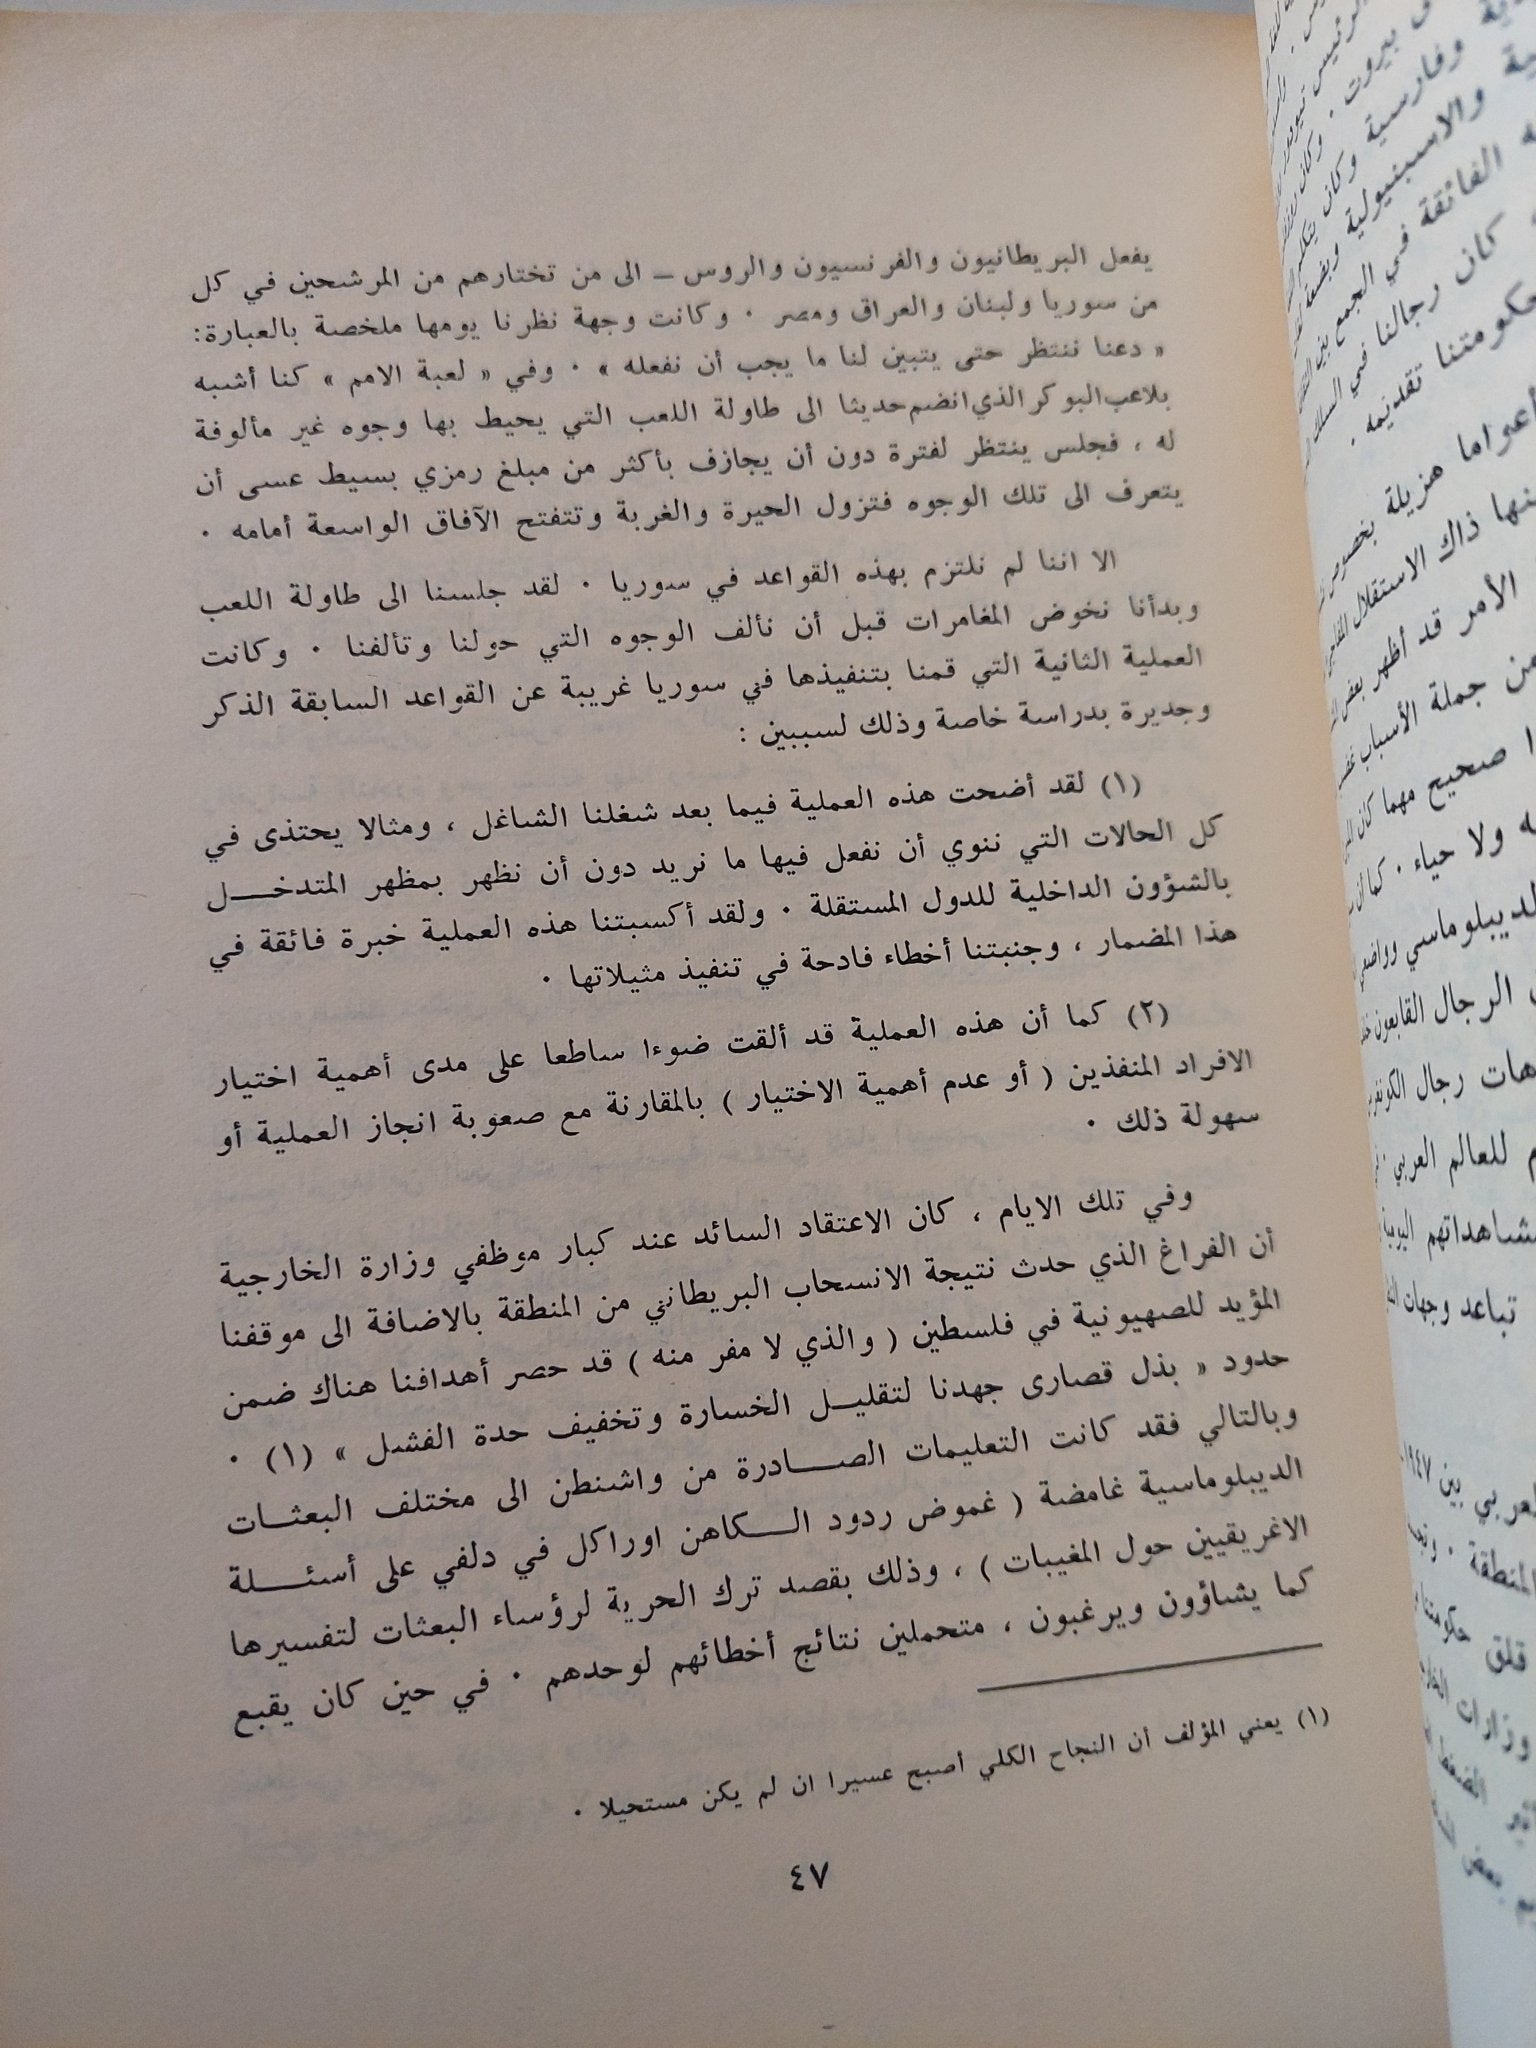 يفعل البريطانيون والفرنسيون والروس ــ الى من تختارهم من المرشحين في كل
من سوريا ولبنان والعراق ومصر ٠ وكانت وجهة نظرنا يومها ملخصة بالعبارة:
« دعنا ننتظر حتى يتبين لنا ما يجب أن نفعله » ٠ وفي « لعبة الامم » كنا أشبه
بلاعب البوكر الذي انضم حديثا الى طاولة اللعب التي يحيط بها وجوه غير مألوفة
له ، فجلس ينتظر لفترة دون أن يجازف بأكثر من مبلغ رمزي بسيط عسى أن
يتعرف الى تلك الوجوه فتزول الحيرة والغربة وتتفتح الآفاق الواسعة أمامه ٠
الا اننا لم نلتزم بهذه القواعد في سوريا ٠ لقد جلسنا الى طاولة اللعب
وبدأنا نخوض المغامرات قبل أن نألف الوجوه التي حولنا وتألفنا ٠ وكانت
العملية الثانية التي قمنا بتنفيذها في سوريا غريبة عن القواعد السابقة الذكر
وجديرة بدراسة خاصة وذلك لسببين :
(١) لقد أضحت هذه العملية فيما بعد شغلنا الشاغل ، ومثالا يحتذى في
كل الحالات التي ننوي أن نفعل فيها ما نريد دون أن نظهر بمظهر المتدخـــل
بالشؤون الداخلية للدول المستقلة ٠ ولقد أكسبتنا هذه العملية خبرة فائقة في
هذا المضمار ، وجنبتنا أخطاء فادحة في تنفيذ مثيلاتها ٠
(٢) كما أن هذه العملية قد ألقت ضوءا ساطعا على مدى أهمية اختيار
الافراد المنفذين ( أو عدم أهمية الاختيار ) بالمقارنة مع صعوبة انجاز العملية أو
سهولة ذلك ٠
وفي تلك الايام ، كان الاعتقاد السائد عند كبار موظفي وزارة الخارجية
أن الفراغ الذي حدث نتيجة الانسحاب البريطاني من المنطقة بالاضافة الى موقفنا
المؤيد للصهيونية في فلسطين ( والذي لا مفر منه ) قد حصر أهدافنا هناك ضمن
حدود « بذل قصارى جهدنا لتقليـل الخسارة وتخفيف حدة الفشل » (١) ٠
وبالتالي فقد كانت التعليمات الصـــادرة من واشنطن الى مختلف البعثـات
الديبلوماسية غامضة ( غموض ردود الـــكاهن اوراكل في دلفي على أسئــــلة
الاغريقيين حول المغيبات ) ، وذلك بقصد ترك الحرية لرؤساء البعثات لتفسيرها
كما يشاؤون ويرغبون ، متحملين نتائج أخطائهم لوحدهم ٠ في حين كان يقبع
(١) يعني المؤلف أن النجاح الكلي أصبح عسيرا ان لم يكن مستحيلا ٠
٤٧